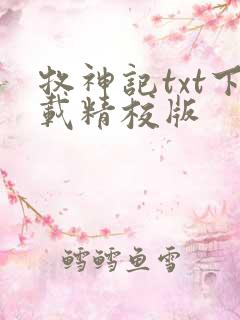 牧神記txt下
載精校版
鱈鱈鱼雪